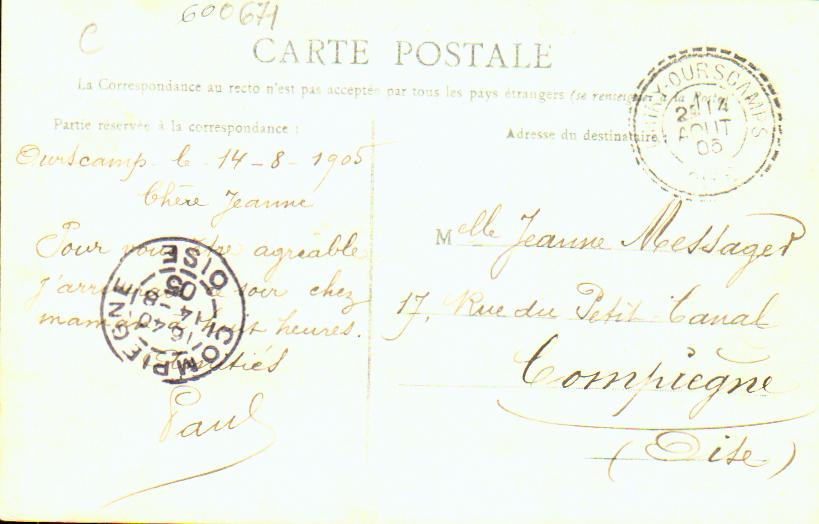 600671
C
CARTE POSTALE
La Correspondance au recto n'est pas acceptée par tous les pays étrangers (se renseigner à la Poste)
Partie réservée à la correspondance :
Adresse du destinataire
Ourscamp le 14-8-1905
Chère Jeanne
Pour vous être agréable
j'arriverai ce soir chez
maman à huit heures.
Amitiés
Paul
Melle Jeanne Messager
17, Rue du Petit Canal
Compiègne
(Oise)
OURSCAMPS
14
AOUT
05
COMPIEGNE
OISE
16 40
14-8
05